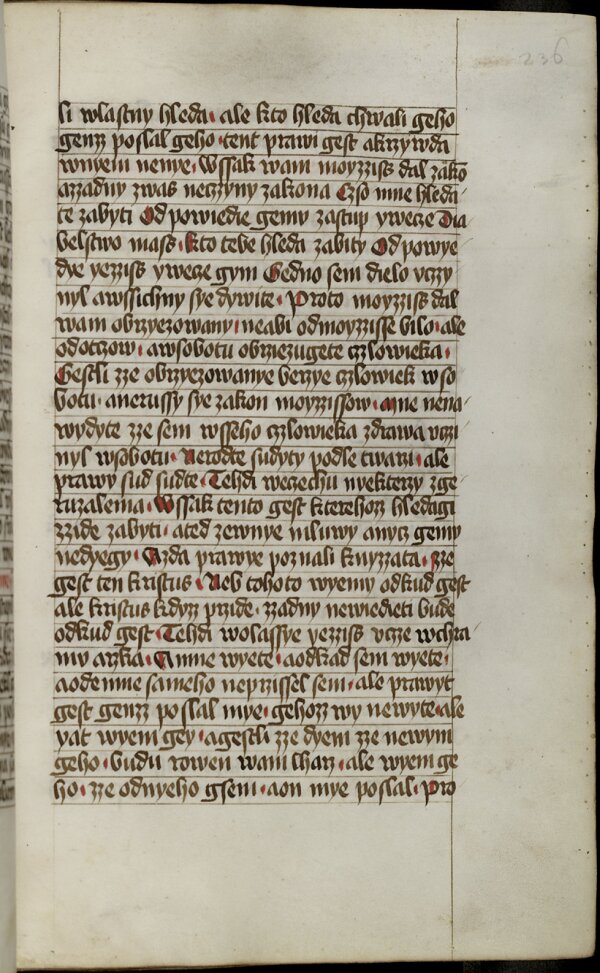 236
li wlastny hleda· ale kto hleda chwali geho
genz poslal geho ·tent prawi gest akrzywda
wnyem nenye· Wssak wam moyzziss dal zakō
azzadny zwas neczyny zakona Czso mne hleda-
te zabyti Od powiedie gemu zastup yweze Dia-
belstwo mass· Kto tebe hleda zabity Od powye
dye yezziss yweze gym Gedno sem dielo vczy
nyl awssichny sye dywite· Proto moyzziss dal
wam obrzyezowany neabi odmoyzzisse bilo· ale
odotczow· awsobotu obrziezugete czlowieka·
Gestli zze obrzyezowanye berzye czlowiek wso
botu· anerussy sye zakon moyzzissow· Mne nena-
wydyte zze sem wsseho czlowieka zdrawa vczi
nyl wsobotu· Nerodte sudyty podle twarzi· ale
prawy sud sudte· Tehdi weczechu nyekterzy zge
ruzalema· Wssak tento gest kterehoz hledagi
zzide zabyti· ated zewnye mluwy anycz gemu
nedyegy· Azda prawye poznali knyzzata· zze
gest ten kristus· Neb tohoto wyemy odkud gest
ale kristus kdyz przide· zzadny newiedieti bude
odkud gest· Tehdi wolassye yezziss vcze wchra-
mu arzka· Amne wyete· aodkad sem wyete·
aodemne sameho neprzissel sem· ale prawyt
gest genz poslal mye· gehoz wy newyte· ale
yat wyem gey· agestli zze dyem zze newym
geho· budu rowen wam lharz· ale wyem ge
ho· zze odnyeho gsem· aon mye poslal· Pro